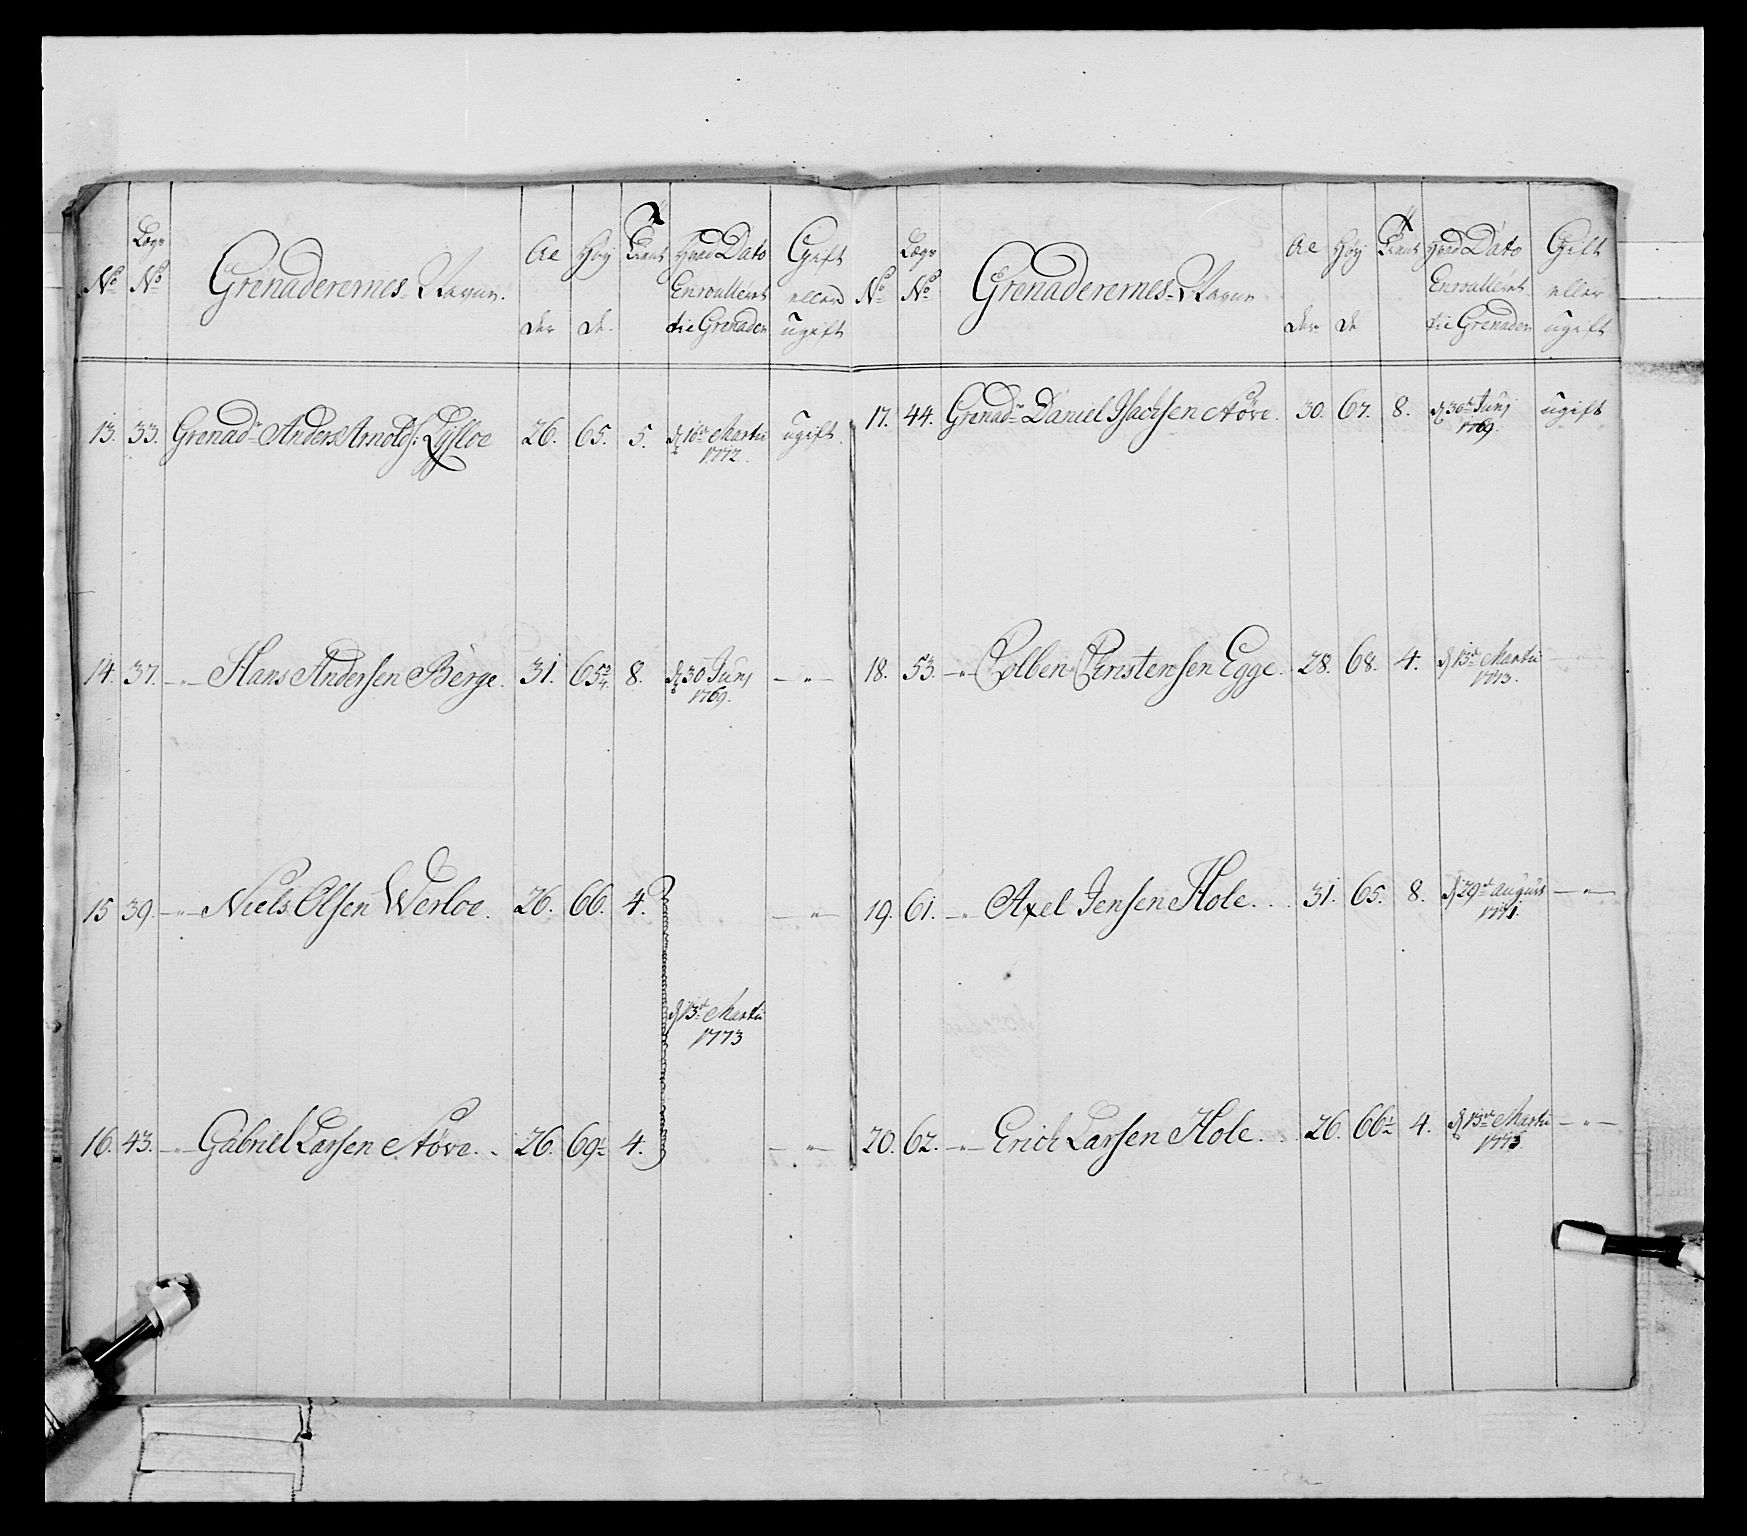 No
Lægs No
Grenaderernes Navne.
Al
der
Høy
de.
Tient
Hvad Dato
Enroulleret
til Grenader
Gift
eller
ugift
13. 33. Grenadr Anders Arnolds: Lysloe 26. 65. 5. d 16de Martii 1772. ugift.
14. 37. —"— Hans Andersen Berge. 31. 65 3/4 8. d 30 Junj 1769. —"—
15 39. —"— Niels Olsen Werloe. 26. 66. 4. —"—
d 13de Martii
1773
16. 43. —"— Gabriel Larsen Støve. 26. 69 1/2 4. —"—
No
Lægs No
Grenaderernes Navne
Al
der
Høy
de
Tient
Hvad Dato
Enroulleret
til Grenader
Gift
eller
ugift
17. 44. Grenadr Daniel Isacksen Støve. 30. 67. 8. d 30te Junj 1769. ugift
18. 53. —"— Colben Cerstensen Egge. 28. 68. 4. d 13de Martii 1773. —"—
19. 61. —"— Axel Jensen Hole. 31. 65. 8. d 29de august 1771. —"—
20. 62. —"— Erich Larsen Hole. 26. 66 1/2 4. d 13de Martii 1773. —"—